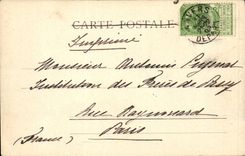 CARTE POSTALE
Imprimé
Monsieur
Institution des Frères de Passy
Rue Raynouard
Paris
(France)